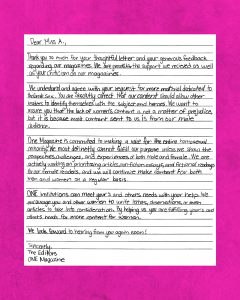 Dear Mrs A.,
Thank you so much for your thoughtful letter and your generous feedback
regarding our magazines. We are grateful for the support we received as well
as your criticism on our magazines.
We understand and agree with your request for more material dedicated to
the female sex. You are absolutely correct that our content should allow other
readers to identify themselves with the subject and heroes. We want to
assure you that the lack of women's content is not a matter of prejudice,
but it is because most content sent to us is from our male
audience.
One Magazine is committed to making a voice for the entire homosexual
minority. We most definitely cannot fulfill our purpose unless we show the
perspectives, challenges, and experiences of both male and female. We are
actively working on prioritizing articles, non-fiction essays, and fictional readings
for our female readers, and we will continue make content for both
men and women on a regular basis.
ONE Institutions can meet your's and others needs with your help. We
encourage you and other women to write letters, observations, or
articles to take into consideration. By helping us you are fulfilling your's and
others needs for more content for women.
We look forward to hearing from you again soon!
Sincerely,
The Editors
ONE Magazine